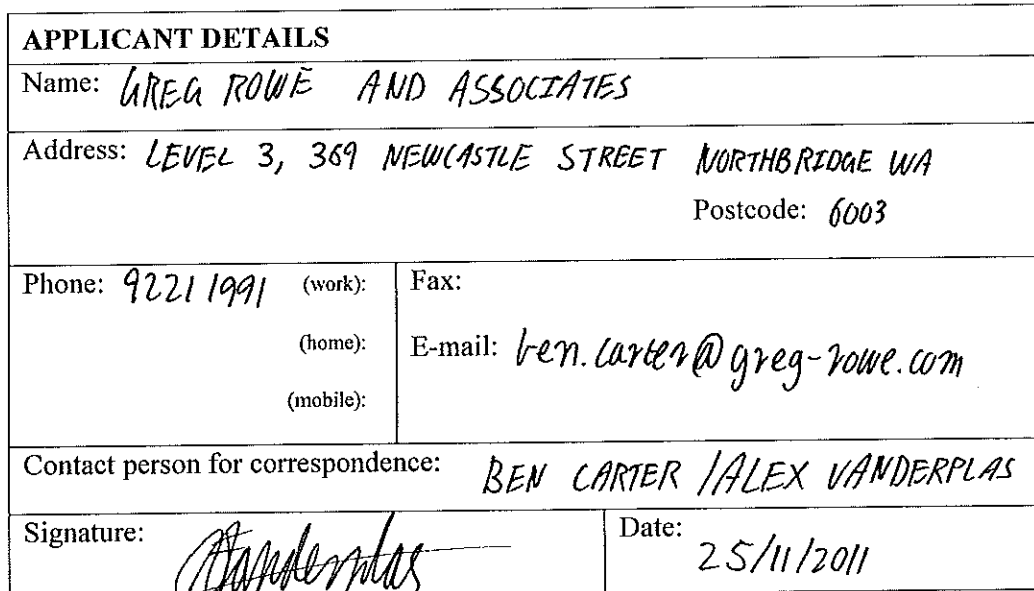 APPLICANT DETAILS
Name: GREG ROWE AND ASSOCIATES
Address: LEVEL 3, 369 NEWCASTLE STREET NORTHBRIDGE WA
Postcode: 6003
Phone: 9221 1991 (work):
(home):
(mobile):
Fax:
E-mail: ben.carter@greg-rowe.com
Contact person for correspondence: BEN CARTER / ALEX VANDERPLAS
Signature: AVanderplas
Date: 25/11/2011